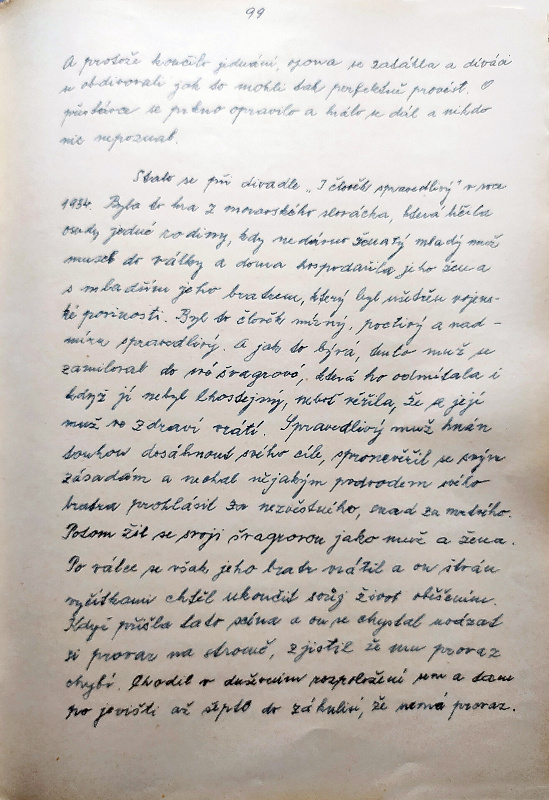 99
A protože končilo jednání, opona se zatáhla a diváci
se obdivovali jak to mohli tak perfektně provést. O
přestávce se prkno opravilo a hrálo se dál a nikdo
nic nepoznal.
Stalo se při divadle „I člověk spravedlivý" v roce
1934. Byla to hra z moravského slovácka, která líčila
osudy jedné rodiny, kdy nedávno ženatý mladý muž
musel do války a doma hospodařila jeho žena
s mladším jeho bratrem, který byl ušetřen vojens-
ké povinosti. Byl to člověk mírný, poctivý a nad-
míru spravedlivý. A jak to bývá, tento muž se
zamiloval do své švagrové, která ho odmítala i
když jí nebyl lhostejný, neboť věřila, že se její
muž ve zdraví vrátí. Spravedlivý muž hnán
touhou dosáhnout svého cíle, zpronevěřil se svým
zásadám a nechal nějakým podvodem svého
bratra prohlásit za nezvěstného, snad za mrtvého.
Potom žil se svojí švagrovou jako muž a žena.
Po válce se však jeho bratr vrátil a on štván
výčitkami chtěl ukončit svůj život oběšením.
Když přišla tato scéna a on se chystal uvázat
si provaz na stromě, zjistil že mu provaz
chybí. Chodil v duševním rozpoložení sem a tam
po jevišti až šeptl do zákulisí, že nemá provaz.